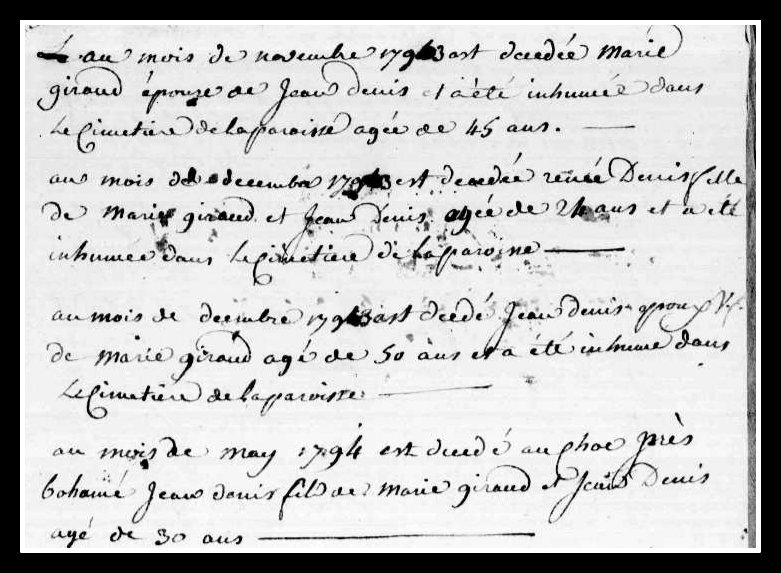 au mois de novembre 1793 est decedée Marie
giraud épouze de Jean denis et a été inhumée dans
Le Cimetiere de la paroisse agée de 45 ans.
au mois de decembre 1793 est decedée renée Denis fille
de Marie giraud et Jean Denis agée de 24 ans et a été
inhumée dans le Cimetiere de la paroisse
au mois de decembre 1793 est decedé Jean denis epoux V.f.
de Marie giraud agé de 50 ans et a été inhume dans
Le Cimetiere de la paroisse
au mois de may 1794 est decedé au près
Jean denis fils de Marie giraud et Jean Denis
agé de 30 ans